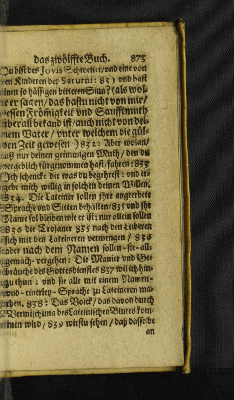 das zwölffte Buch. 875
Du bist des Jovis Schwester/und eine von
den Kinderen des Saturni: 831 und hast
einen so hässigen bitteren Sinn? (als wol-
te er sagen/das hastu nicht von mir/
dessen Frömigkeit und Sanfftmuth
überall bekand ist/auch nicht von dei-
nem Vater/unter welchem die gül-
den Zeit gewesen) 832: Aber wolan/
laß nur deinen grimmigen Muth/den du
vergeblich fürgenommen hast/fahren: 833
Ich schencke dir was du begehrest: und er-
gebe mich willig in solchen deinen Willen.
834. Die Lateiner sollen ihre angeerbete
Sprache und Sitten behalten/835 und ihr
Name sol bleiben wie er ist: nur allein sollen
836 die Trojaner 835 nach den Leiberen
sich mit den Lateineren vermengen/836
aber nach dem Namen sollen sie all-
gemach vergehen: Die Manier und Ge-
bräuche des Gottesdienstes 837 wil ich hin-
zu thun: und sie alle mit einem Namen
und einerley Sprache zu Lateineren ma-
chen. 838: Das Volck/das davon durch
Vermischung des Lateinischen Blutes kom-
men wird/839 wirstu sehen/daß dasselbe
an